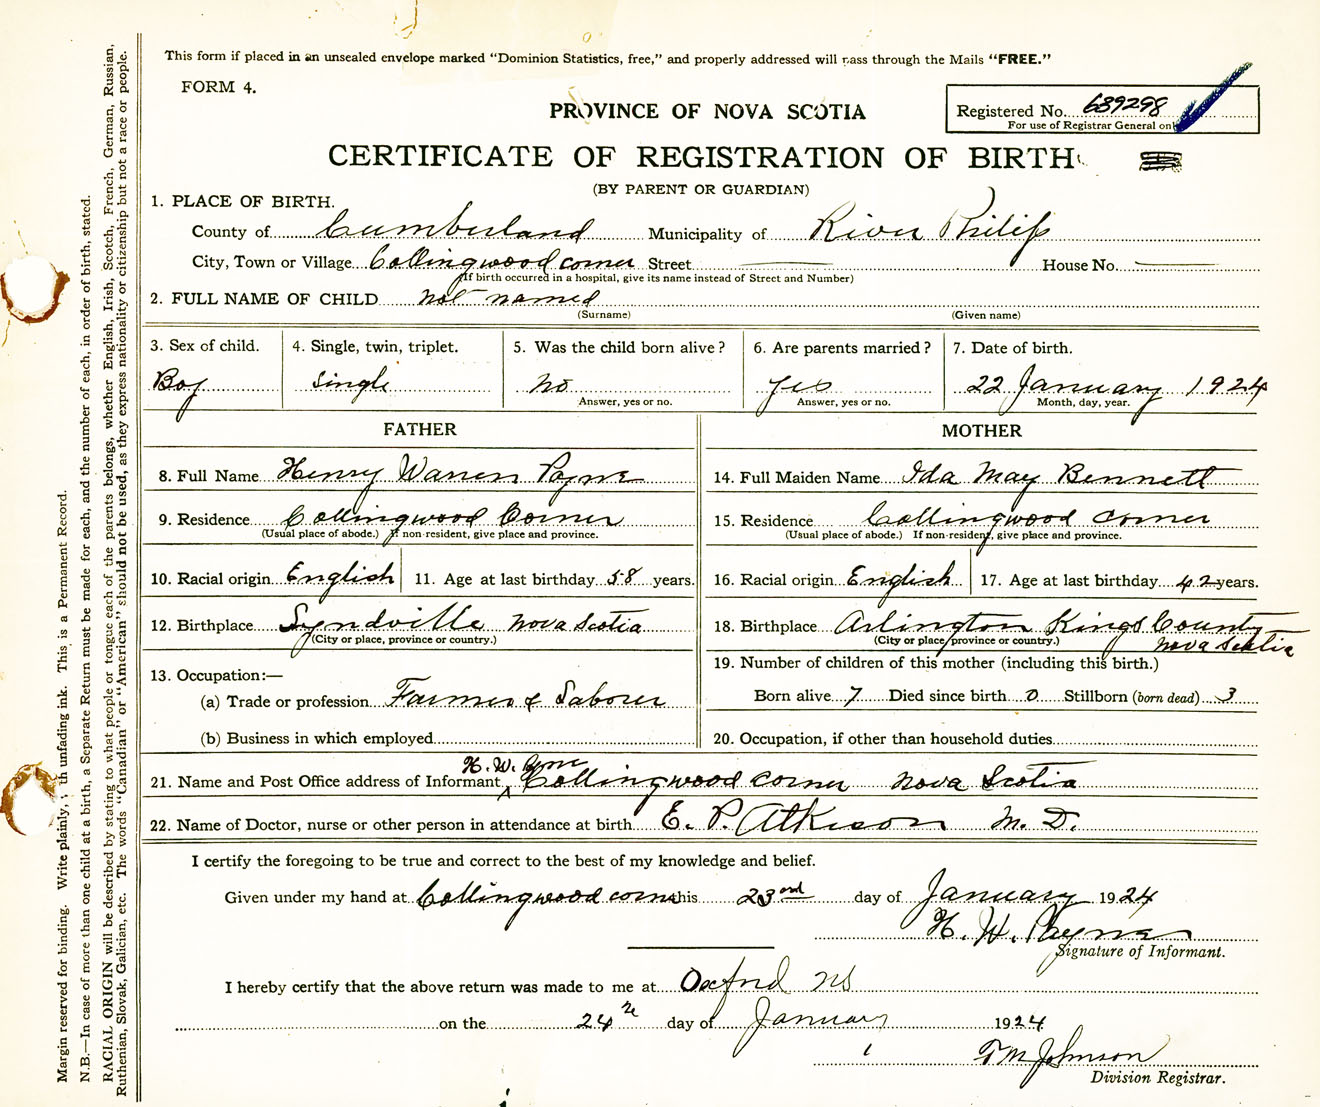 This form if placed in an unsealed envelope marked "Dominion Statistics, free," and properly addressed will pass through the Mails "FREE."
FORM 4.
Registered No. 689298
For use of Registrar General only
PROVINCE OF NOVA SCOTIA
CERTIFICATE OF REGISTRATION OF BIRTH
(BY PARENT OR GUARDIAN)
1. PLACE OF BIRTH.
County of Cumberland Municipality of River Philip
City, Town or Village Collingwood corner Street House No.
(If birth occurred in a hospital, give its name instead of Street and Number)
2. FULL NAME OF CHILD not named
(Surname) (Given name)
3. Sex of child. 4. Single, twin, triplet. 5. Was the child born alive? 6. Are parents married? 7. Date of birth.
Boy single no yes 22 January 1924
Answer, yes or no. Answer, yes or no. Month, day, year.
FATHER MOTHER
8. Full Name Henry Warren Payne 14. Full Maiden Name Ida May Bennett
9. Residence Collingwood Corner 15. Residence Collingwood corner
(Usual place of abode.) If non-resident, give place and province. (Usual place of abode.) If non-resident, give place and province.
10. Racial origin English 11. Age at last birthday 58 years. 16. Racial origin English 17. Age at last birthday 42 years.
12. Birthplace Nova Scotia 18. Birthplace Arlington Kings County
(City or place, province or country.) (City or place, province or country.) Nova Scotia
13. Occupation:— 19. Number of children of this mother (including this birth.)
(a) Trade or profession Farmer & Laborer Born alive 7 Died since birth 0 Stillborn (born dead) 3
(b) Business in which employed 20. Occupation, if other than household duties
H. W. Payne
21. Name and Post Office address of Informant Collingwood corner Nova Scotia
22. Name of Doctor, nurse or other person in attendance at birth E. P. Atkison M. D.
I certify the foregoing to be true and correct to the best of my knowledge and belief.
Given under my hand at Collingwood corner this 23rd day of January 1924
H. W. Payne
Signature of Informant.
I hereby certify that the above return was made to me at Oxford NS
on the 24 day of January 1924
T M Johnson
Division Registrar.
Margin reserved for binding. Write plainly, with unfading ink. This is a Permanent Record.
N.B.—In case of more than one child at a birth, a Separate Return must be made for each, and the number of each, in order of birth, stated.
RACIAL ORIGIN will be described by stating to what people or tongue each of the parents belongs, whether English, Irish, Scotch, French, German, Russian,
Ruthenian, Slovak, Galician, etc. The words "Canadian" or "American" should not be used, as they express nationality or citizenship but not a race or people.